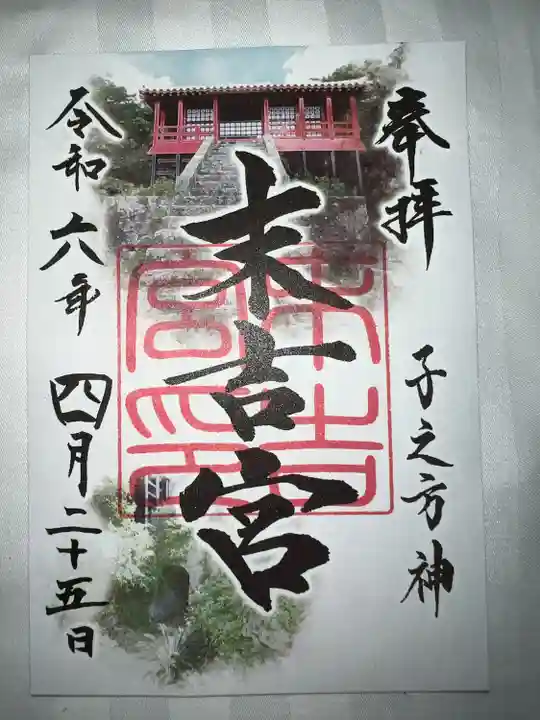 奉拝
子之方神
末吉宮
末吉宮印
令和六年
四月二十五日